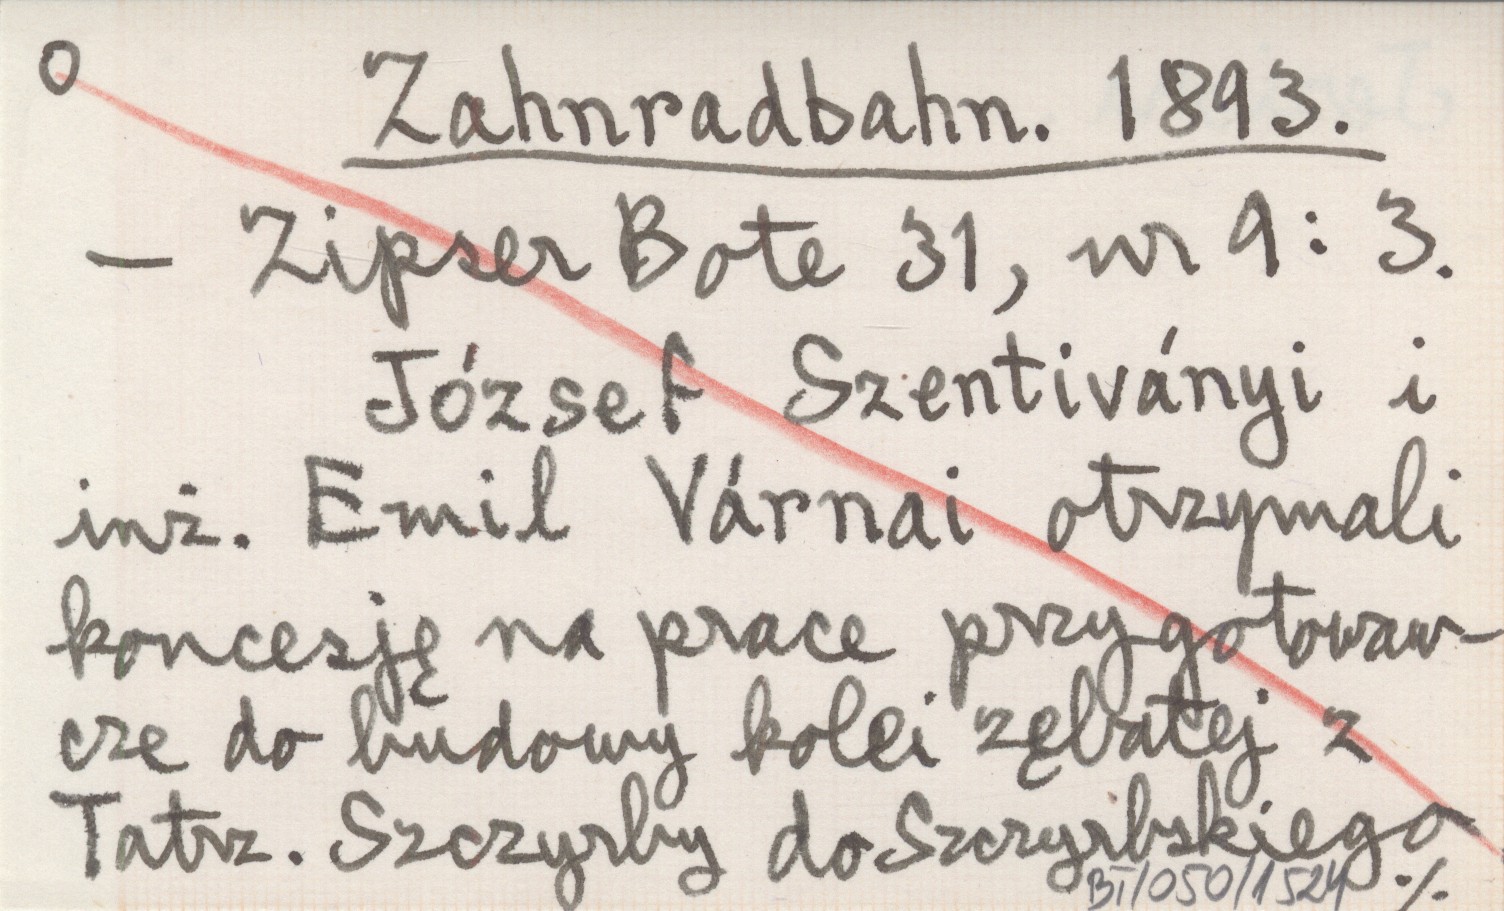 o
Zahnradbahn. 1893.
— Zipser Bote 31, nr 9: 3.
József Szentiványi i
inż. Emil Várnai otrzymali
koncesję na prace przygotowaw-
cze do budowy kolei zębatej z
Tatrz. Szczyrby do Szczyrbskiego
BT/050/1524 ./.